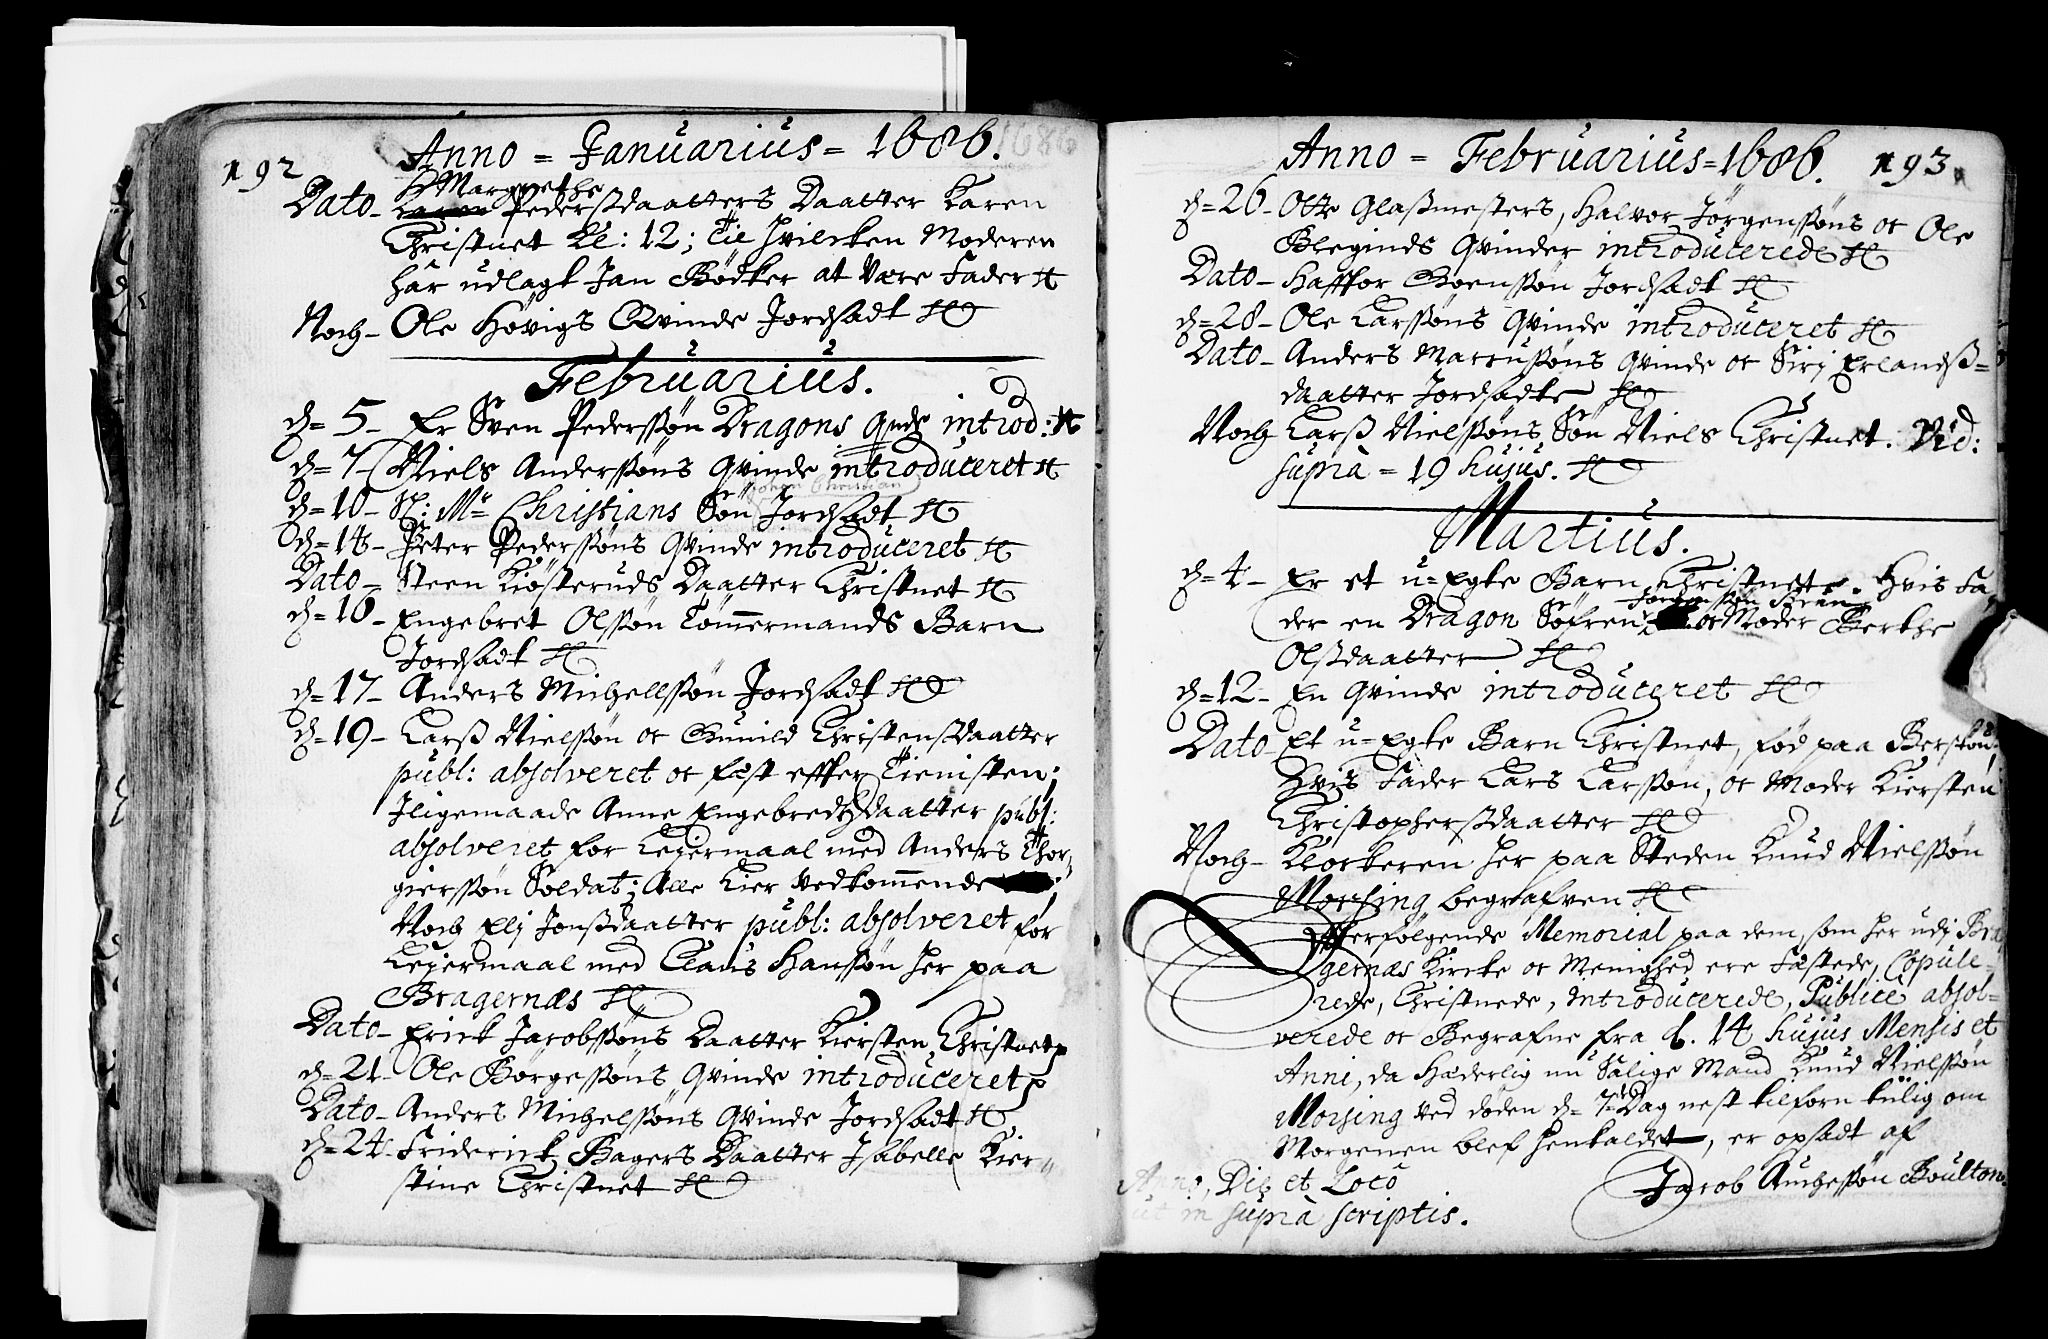 192
Anno = Januarius = 1686.
1686
Margrethe
Dato - Karen Pederssdaatters Daatter Karen
Christnet Kl: 12; Til hvilcken Moderen
har udlagt Jan Bødker at være Fader
Noch - Ole Høvigs Qvinde Jordsadt
Februarius.
d= 5 - Er Sven Pederssøn Dragons Qvde introd:
d= 7 - Niels Anderssøns Qvinde introduceret
Johan Christian
d= 10 - Sl: Mr Christians Søn Jordsadt
d= 14 - Peter Pederssøns Qvinde introduceret
Dato - Steen Kiøsteruds Daatter Christnet
d= 16 - Engebret Olssøn Tømmermands Barn
Jordsadt
d= 17 - Anders Michellssøn Jordsadt
d= 19 - Larss Nielssøn oc Gunild Christenssdaatter
publ: absolveret oc fæst effter Tienisten;
Iligemaade Anne Engebredtzdaatter publ:
absolveret for Leiermaal med Anders Thor-
gierssøn Soldat; Alle Lier vedkommende
Noch Elj Jonssdaatter publ: absolveret for
Leiermaal med Claus Hanssøn her paa
Bragernæs
Dato - Erick Jacobssøns Daatter Kiersten Christnet
d= 21 - Ole Børgessøns Qvinde introduceret
Dato - Anders Michelssøns Qvinde Jordsadt
d= 24 - Friderick Bagers Daatter Isabelle Kier-
stine Christnet
Anno = Februarius = 1686. 193
d= 26 - Otte Glassmesters, Halvor Jørgenssøns oc Ole
Bleginds Qvinder introducerede
Dato - Hafftor Goenssøn Jordsadt
d= 28 - Ole Larssøns Qvinde introduceret
Dato - Anders Marcussøns Qvinde oc Sirj Erlandss=
daatter Jordsadte
Noch Larss Nielssøns Søn Niels Christnet. Vid:
suprà = 19 hujus.
Martius.
d= 4 - Er et u=Egte Barn Christnet. Hvis Fa-
der en Dragon Søfren oc Moder Berthe
Olssdaatter
d= 12 - En Qvinde introduceret
Dato - Et u=Egte Barn Christnet, fød paa
Hvis Fader Lars Larssøn, oc Moder Kiersten
Christopherssdaatter
Noch - Klockeren her paa Steden Knud Nielssøn
Morsing begrafven
Efterfølgende Memorial paa dem som her udj Bra-
gernæs Kircke oc Menighed ere Fæstede, Copule-
rede, Christnede, Introducerede, Publicè absol=
verede oc Begrafne fra d. 14 hujus Mensis et
Anni, da Hæderlig nu Salige Mand Knud Nielssøn
Morsing ved døden d= 7de Dag nest tilforn tilig om
Morgenen blef henkaldet, er opsadt af
Anno, Die et Loco Jacob Auchessøn Boulton.
ut in suprà scriptis.